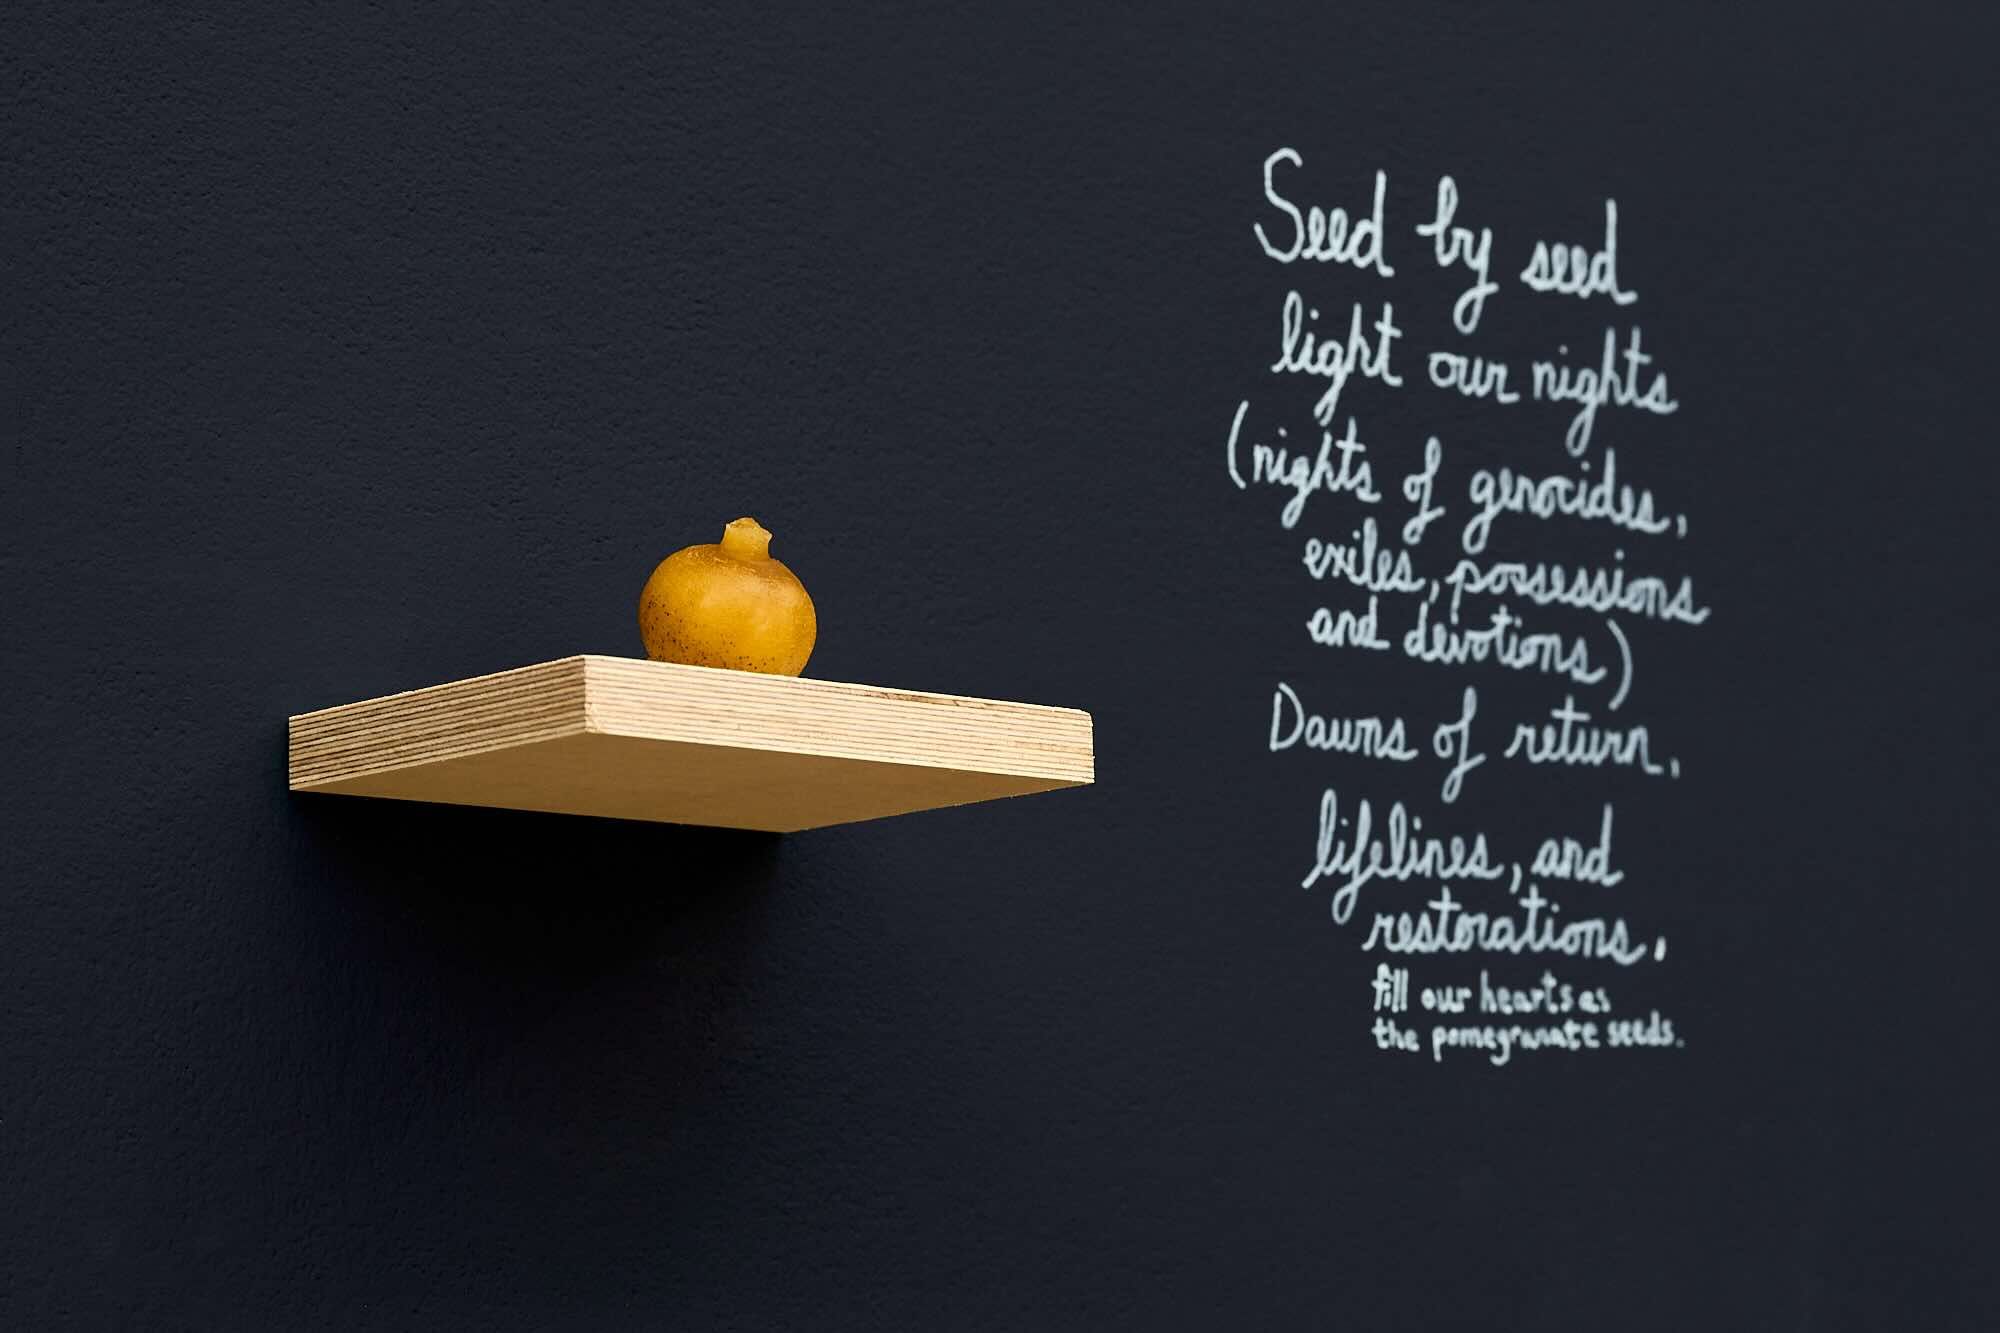 Seed by seed
light our nights
(nights of genocides,
exiles, possessions
and devotions)
Dawns of return,
lifelines, and
restorations,
fill our hearts as
the pomegranate seeds.